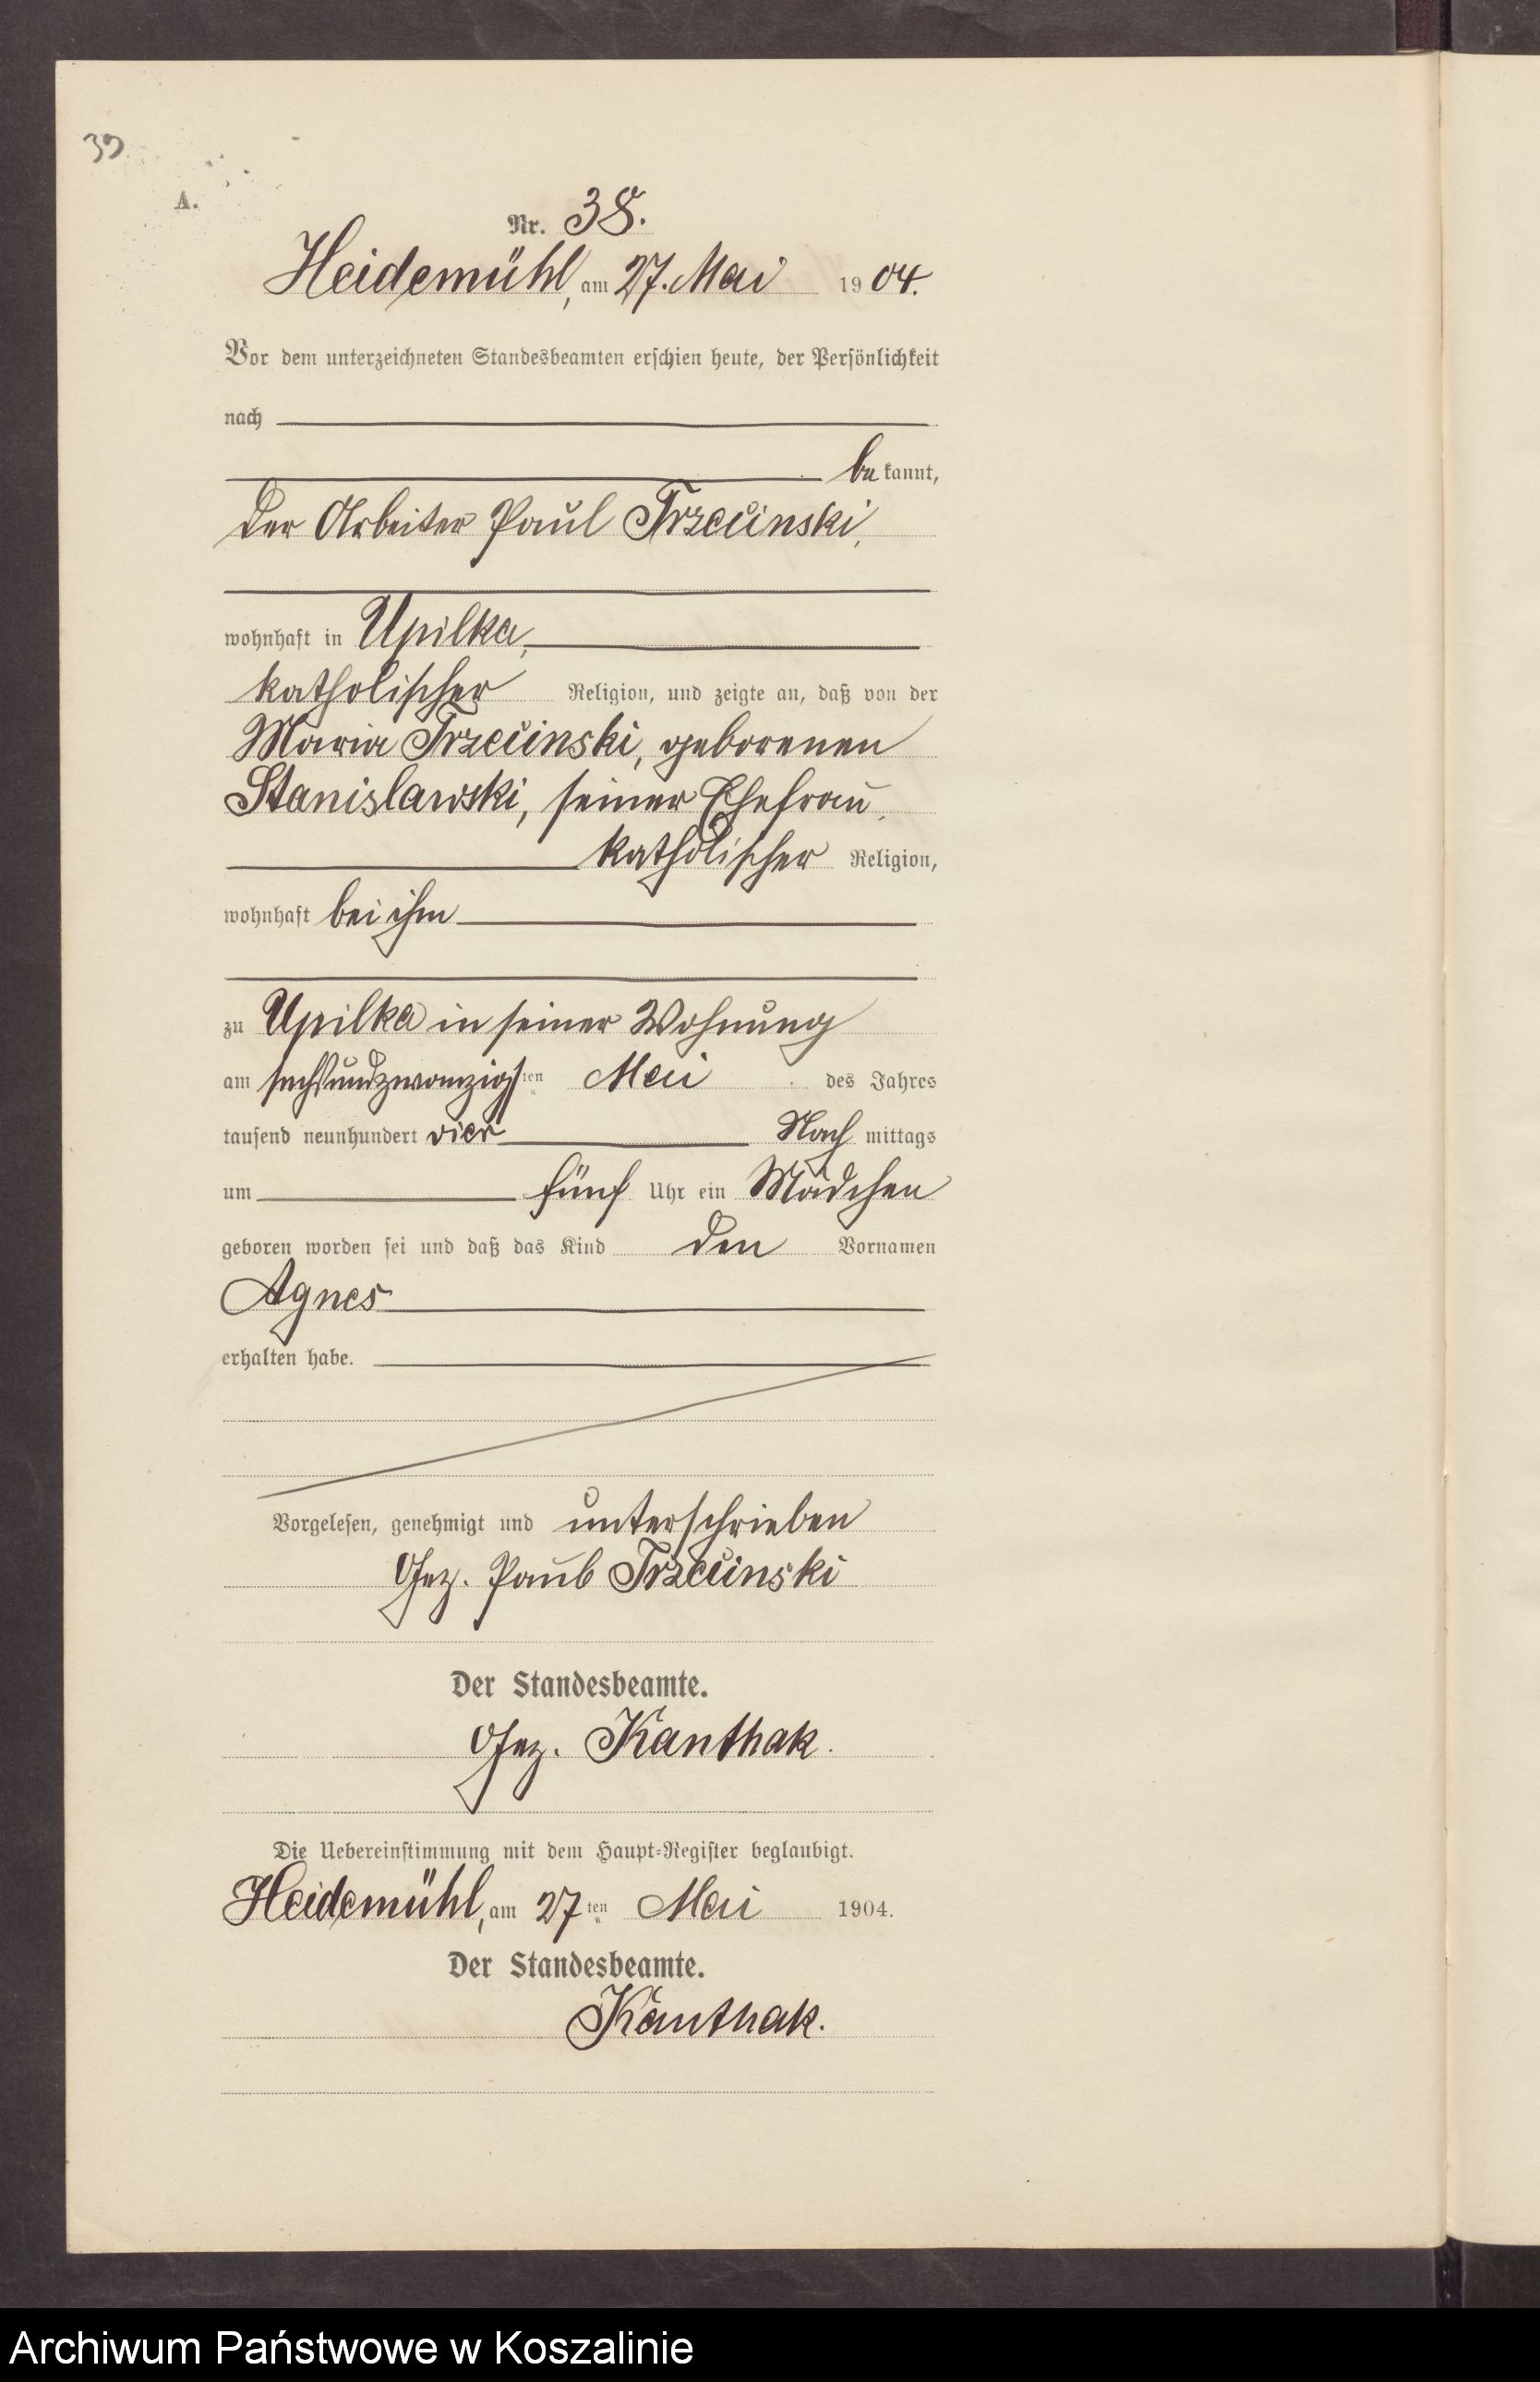 39
A.
Nr. 38.
Heidemühl, am 27. Mai 1904.
Vor dem unterzeichneten Standesbeamten erschien heute, der Persönlichkeit
nach
bekannt,
der Arbeiter Paul Trzecinski,
wohnhaft in Upilka,
katholischer Religion, und zeigte an, daß von der
Maria Trzecinski, geborenen
Stanislawski, seiner Ehefrau,
katholischer Religion,
wohnhaft bei ihm
zu Upilka in seiner Wohnung
am sechsundzwanzigsten Mai des Jahres
tausend neunhundert vier Nachmittags
um fünf Uhr ein Mädchen
geboren worden sei und daß das Kind den Vornamen
Agnes
erhalten habe.
Vorgelesen, genehmigt und unterschrieben
Gez. Paul Trzecinski
Der Standesbeamte.
Gez. Kanthak.
Die Uebereinstimmung mit dem Haupt-Register beglaubigt.
Heidemühl, am 27ten Mai 1904.
Der Standesbeamte.
Kanthak.
Archiwum Państwowe w Koszalinie